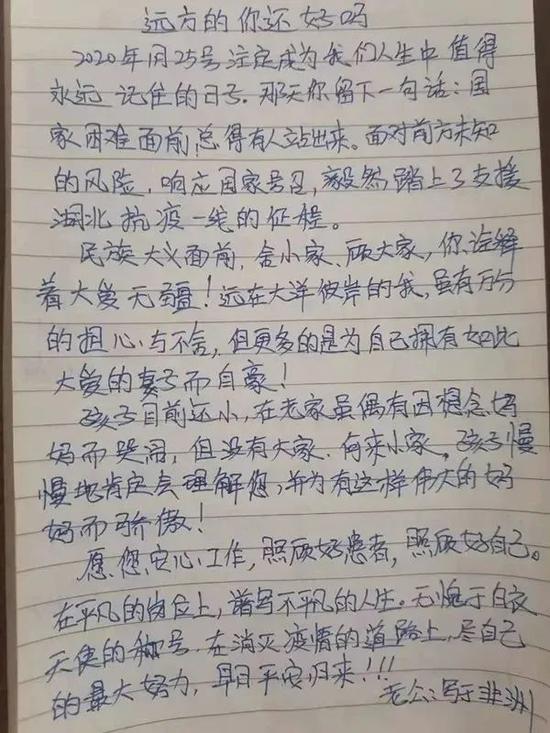 远方的你还好吗
2020年1月25号注定成为我们人生中值得
永远记住的日子。那天你留下一句话：国
家困难面前总得有人站出来。面对前方未知
的风险，响应国家号召，毅然踏上了支援
湖北抗疫一线的征程。
民族大义面前，舍小家、顾大家，你诠释
着大爱无疆！远在大洋彼岸的我，虽有万分
的担心与不舍，但更多的是为自己拥有如此
大爱的妻子而自豪！
孩子目前还小，在老家虽偶有因想念妈
妈而哭闹，但没有大家、何来小家。孩子慢
慢地肯定会理解您，并为有这样伟大的妈
妈而骄傲！
愿您安心工作，照顾好患者，照顾好自己。
在平凡的岗位上，谱写不平凡的人生。无愧于白衣
天使的称号，在消灭疫情的道路上，尽自己
的最大努力，早日平安归来！！！
老公：写于非洲